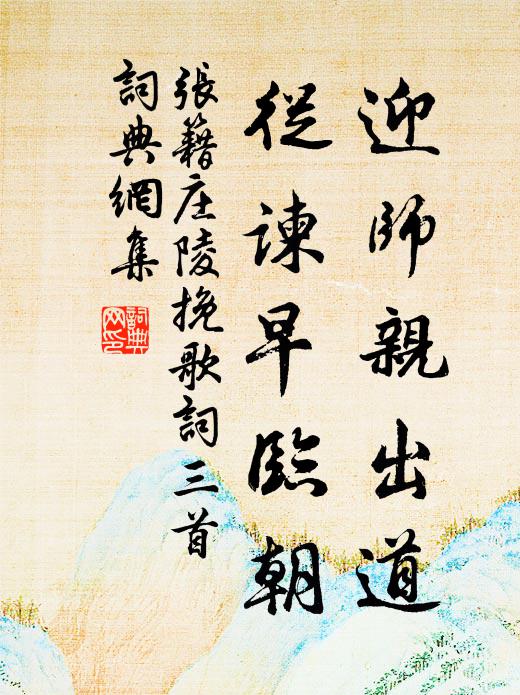 迎師親出道
從諫早臨朝
張籍庄陵挽歌詞三首
詞典網集
詞典
网印